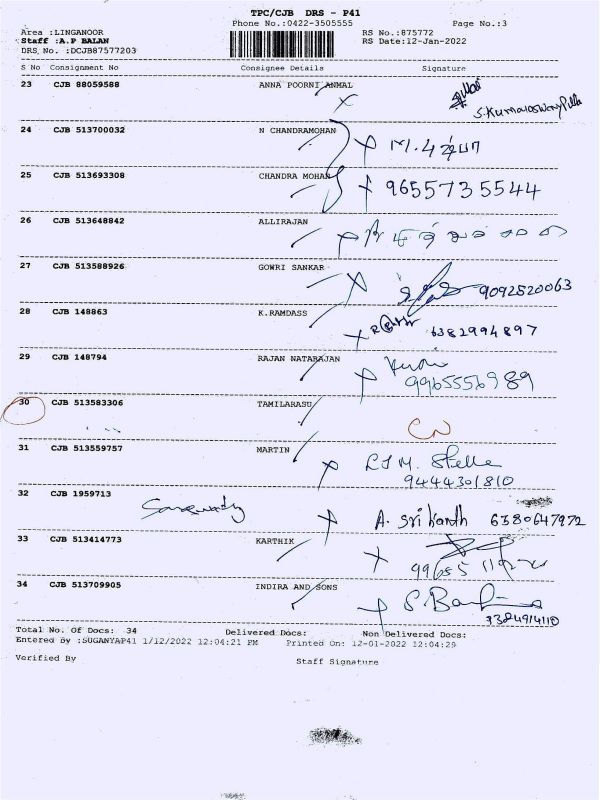 TPC/CJB DRS - P41
Phone No.:0422-3505555 Page No.:3
Area :LINGANOOR RS No.:875772
Staff :A.P BALAN RS Date:12-Jan-2022
DRS, No. :DCJB87577203
S No Consignment No Consignee Details Signature
23 CJB 88059588 ANNA POORNI AMMAL
S.Kumaraswamy Pillai
24 CJB 513700032 N CHANDRAMOHAN
25 CJB 513693308 CHANDRA MOHAN 9655735544
26 CJB 513648842 ALLIRAJAN
27 CJB 513588926 GOWRI SANKAR
9092520063
28 CJB 148863 K.RAMDASS
6382994897
29 CJB 148794 RAJAN NATARAJAN
9965556989
30 CJB 513583306 TAMILARASU
CN
31 CJB 513559757 MARTIN
Stella
9444301810
32 CJB 1959713
A. Srikanth 6380647972
33 CJB 513414773 KARTHIK
34 CJB 513709905 INDIRA AND SONS
Total No. Of Docs: 34 Delivered Docs: Non Delivered Docs:
Entered By :SUGANYAP41 1/12/2022 12:04:21 PM Printed On: 12-01-2022 12:04:29
Verified By Staff Signature